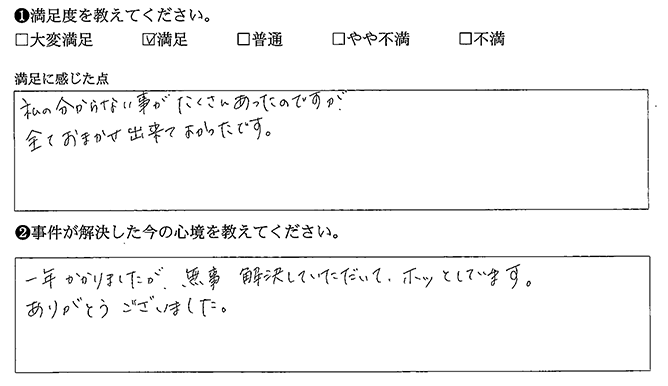 ❶満足度を教えてください。
□大変満足 ☑満足 □普通 □やや不満 □不満
満足に感じた点
私の分からない事がたくさんあったのですが、
全ておまかせ出来てよかったです。
❷事件が解決した今の心境を教えてください。
一年かかりましたが、無事 解決していただいて、ホッとしています。
ありがとうございました。